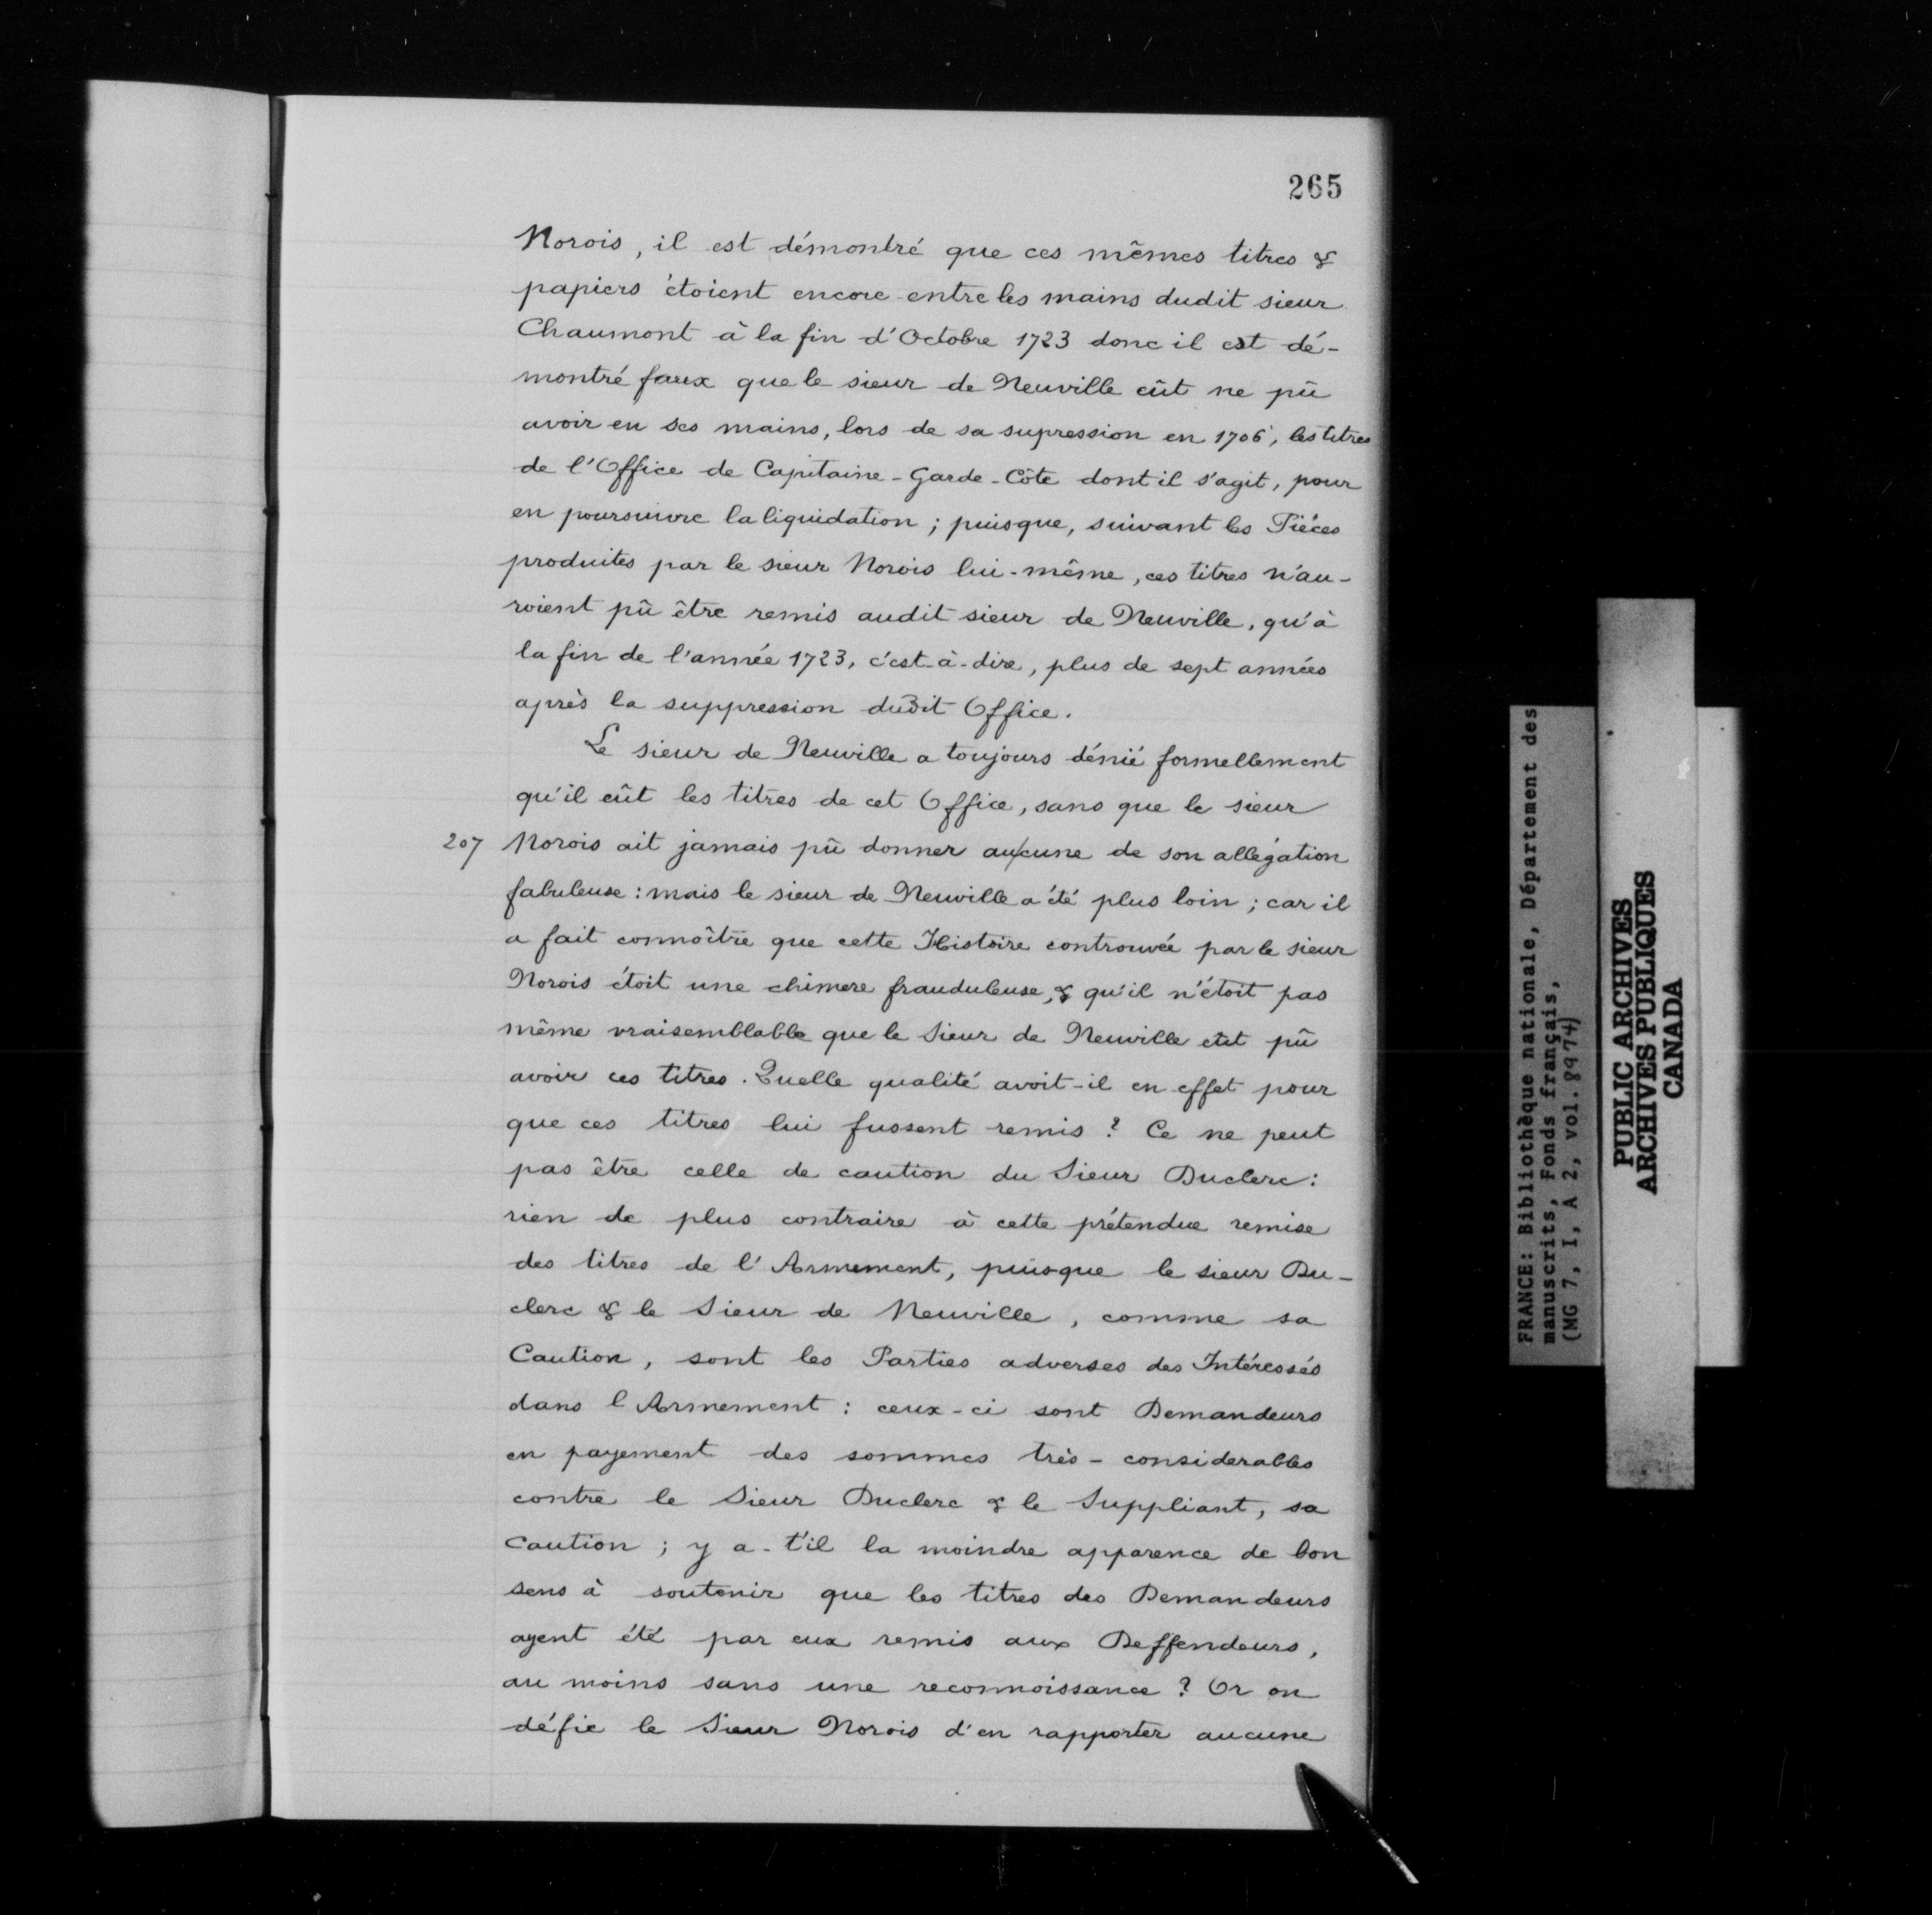 265
Norois, il est démontré que ces mêmes titres &
papiers étoient encore entre les mains dudit sieur
Chaumont à la fin d'Octobre 1723 donc il est dé-
montré faux que le sieur de Neuville eût ne pû
avoir en ses mains, lors de sa supression en 1706, les titres
de l'Office de Capitaine-Garde-Côte dont il s'agit, pour
en poursuivre la liquidation ; puisque, suivant les Piéces
produites par le sieur Norois lui-même, ces titres n'au-
roient pû être remis audit sieur de Neuville, qu'à
la fin de l'année 1723, c'est-à-dire, plus de sept années
après la suppression dudit Office.
Le sieur de Neuville a toujours dénié formellement
qu'il eût les titres de cet Office, sans que le sieur
207 Norois ait jamais pû donner aucune de son allégation
fabuleuse : mais le sieur de Neuville a été plus loin ; car il
a fait connoître que cette Histoire controuvée par le sieur
Norois étoit une chimere frauduleuse, & qu'il n'étoit pas
même vraisemblable que le Sieur de Neuville eût pû
avoir ces titres. Quelle qualité avoit-il en effet pour
que ces titres lui fussent remis ? Ce ne peut
pas être celle de caution du Sieur Duclerc :
rien de plus contraire à cette prétendue remise
des titres de l'Armement, puisque le sieur Du-
clerc & le Sieur de Neuville, comme sa
Caution, sont les Parties adverses des Intéressés
dans l Armement : ceux-ci sont Demandeurs
en payement des sommes très-considerables
contre le Sieur Duclerc & le Suppliant, sa
Caution ; y a-t'il la moindre apparence de bon
sens à soutenir que les titres des Demandeurs
ayent été par eux remis aux Deffendeurs,
au moins sans une reconnoissance ? Or on
défie le Sieur Norois d'en rapporter aucune
FRANCE: Bibliothèque nationale, Département des
manuscrits, Fonds français,
(MG 7, I, A 2, vol. 8974)
PUBLIC ARCHIVES
ARCHIVES PUBLIQUES
CANADA